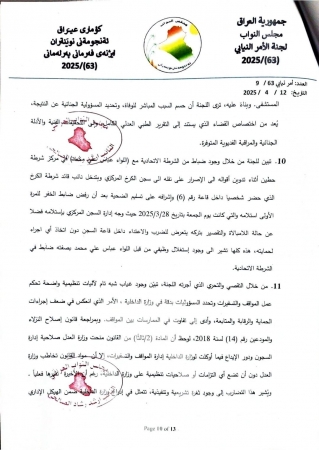 جمهورية العراق
مجلس النواب
لجنة الأمر النيابي
(63)/2025
كۆماری عێراق
ئەنجومەنی نوێنەران
لیژنەی فەرمانی پەرلەمانی
(63)/2025
العدد: أمر نيابي 63 / 9
التاريخ: 12 / 4 / 2025
المستشفى. وبناءً عليه، ترى اللجنة أن حسم السبب المباشر للوفاة، وتحديد المسؤولية الجنائية عن النتيجة،
يُعد من اختصاص القضاء الذي يستند إلى التقرير الطبي العدلي الفنية والأدلة
الجنائية والمراقبة الفديوية المتوفرة.
10. تبين للجنة من خلال وجود ضابط من الشرطة الاتحادية مع (اللواء عباس علي محمد) الى مركز شرطة
حطين أثناء تدوين أقواله الى الإصرار على نقله الى سجن الكرخ المركزي وبتدخل نائب قائد شرطة الكرخ
الذي حضر شخصيا داخل قاعة رقم (6) وإشرافه على تسليم الضحية بعد أن رفض ضابط الخفر للمرة
الأولى استلامه والتي كانت يوم الجمعة بتاريخ 2025/3/28 حيث وجه إدارة السجن المركزي بإستلامه فضلا
عن حالة اللامبالاة والتقاصير بتركه يتعرض للضرب والاعتداء داخل قاعة السجن دون اتخاذ أي اجراء
لحمايته، هذه كلها تشير الى وجود إستغلال وظيفي من قبل اللواء عباس علي محمد بصفته ضابط في
الشرطة الاتحادية.
11. من خلال التقصي والتحري الذي أجرته اللجنة، تبيّن وجود غياب شبه تام لآليات تنظيمية واضحة تحكم
عمل المواقف والتسفيرات وتحدد المسؤوليات بدقة في وزارة الداخلية ، الأمر الذي انعكس في ضعف إجراءات
الحماية والرقابة والمتابعة، وأدى إلى تفاوت في الممارسات بين المواقف. وبمراجعة قانون إصلاح النزلاء
والمودعين رقم (14) لسنة 2018، لوحظ أن المادة (2/ثالثاً) من القانون منحت وزارة العدل صلاحية إدارة
السجون ودور الإيداع فيما أوكلت لوزارة الداخلية إدارة المواقف والتسفيرات، إلا أن مواد القانون تخاطب وزارة
العدل دون أن تضع أي التزامات أو صلاحيات تنظيمية على وزارة الداخلية، رغم أن الأخيرة فعلياً .
ويُشير هذا التضارب إلى وجود ثغرة تشريعية وتنفيذية، تتمثل في وزارة ضمن الهيكل الإداري
Page 10 of 13